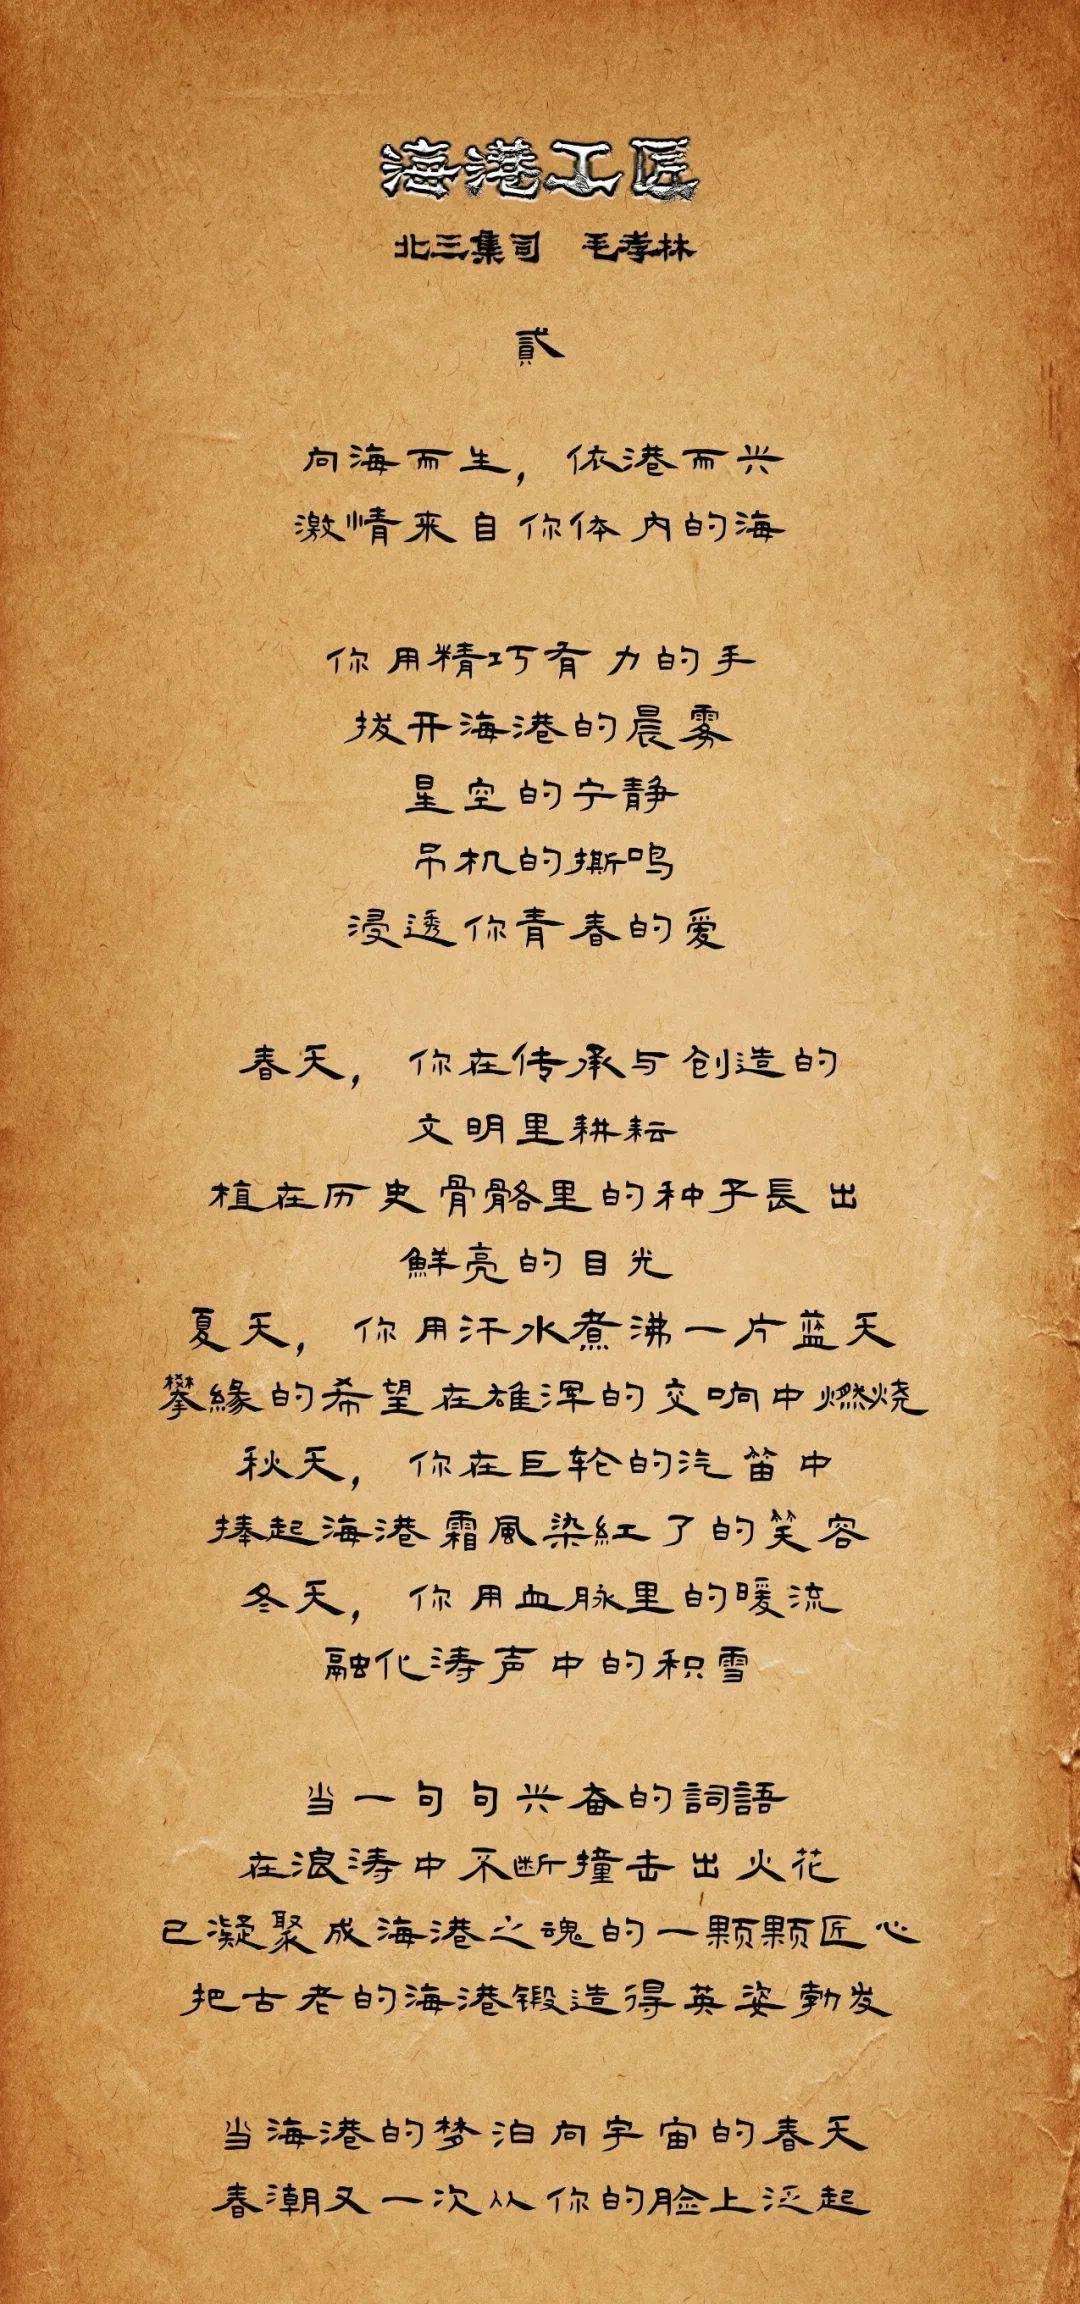 海港工匠
北三集司 毛孝林
貳
向海而生，依港而兴
激情来自你体内的海
你用精巧有力的手
拔开海港的晨雾
星空的宁静
吊机的撕鸣
浸透你青春的爱
春天，你在传承与创造的
文明里耕耘
植在历史骨骼里的种子長出
鮮亮的目光
夏天，你用汗水煮沸一片蓝天
攀緣的希望在雄浑的交响中燃烧
秋天，你在巨轮的汽笛中
捧起海港霜風染紅了的笑容
冬天，你用血脉里的暖流
融化涛声中的积雪
当一句句兴奋的詞語
在浪涛中不断撞击出火花
已凝聚成海港之魂的一颗颗匠心
把古老的海港锻造得英姿勃发
当海港的梦泊向宇宙的春天
春潮又一次从你的脸上泛起